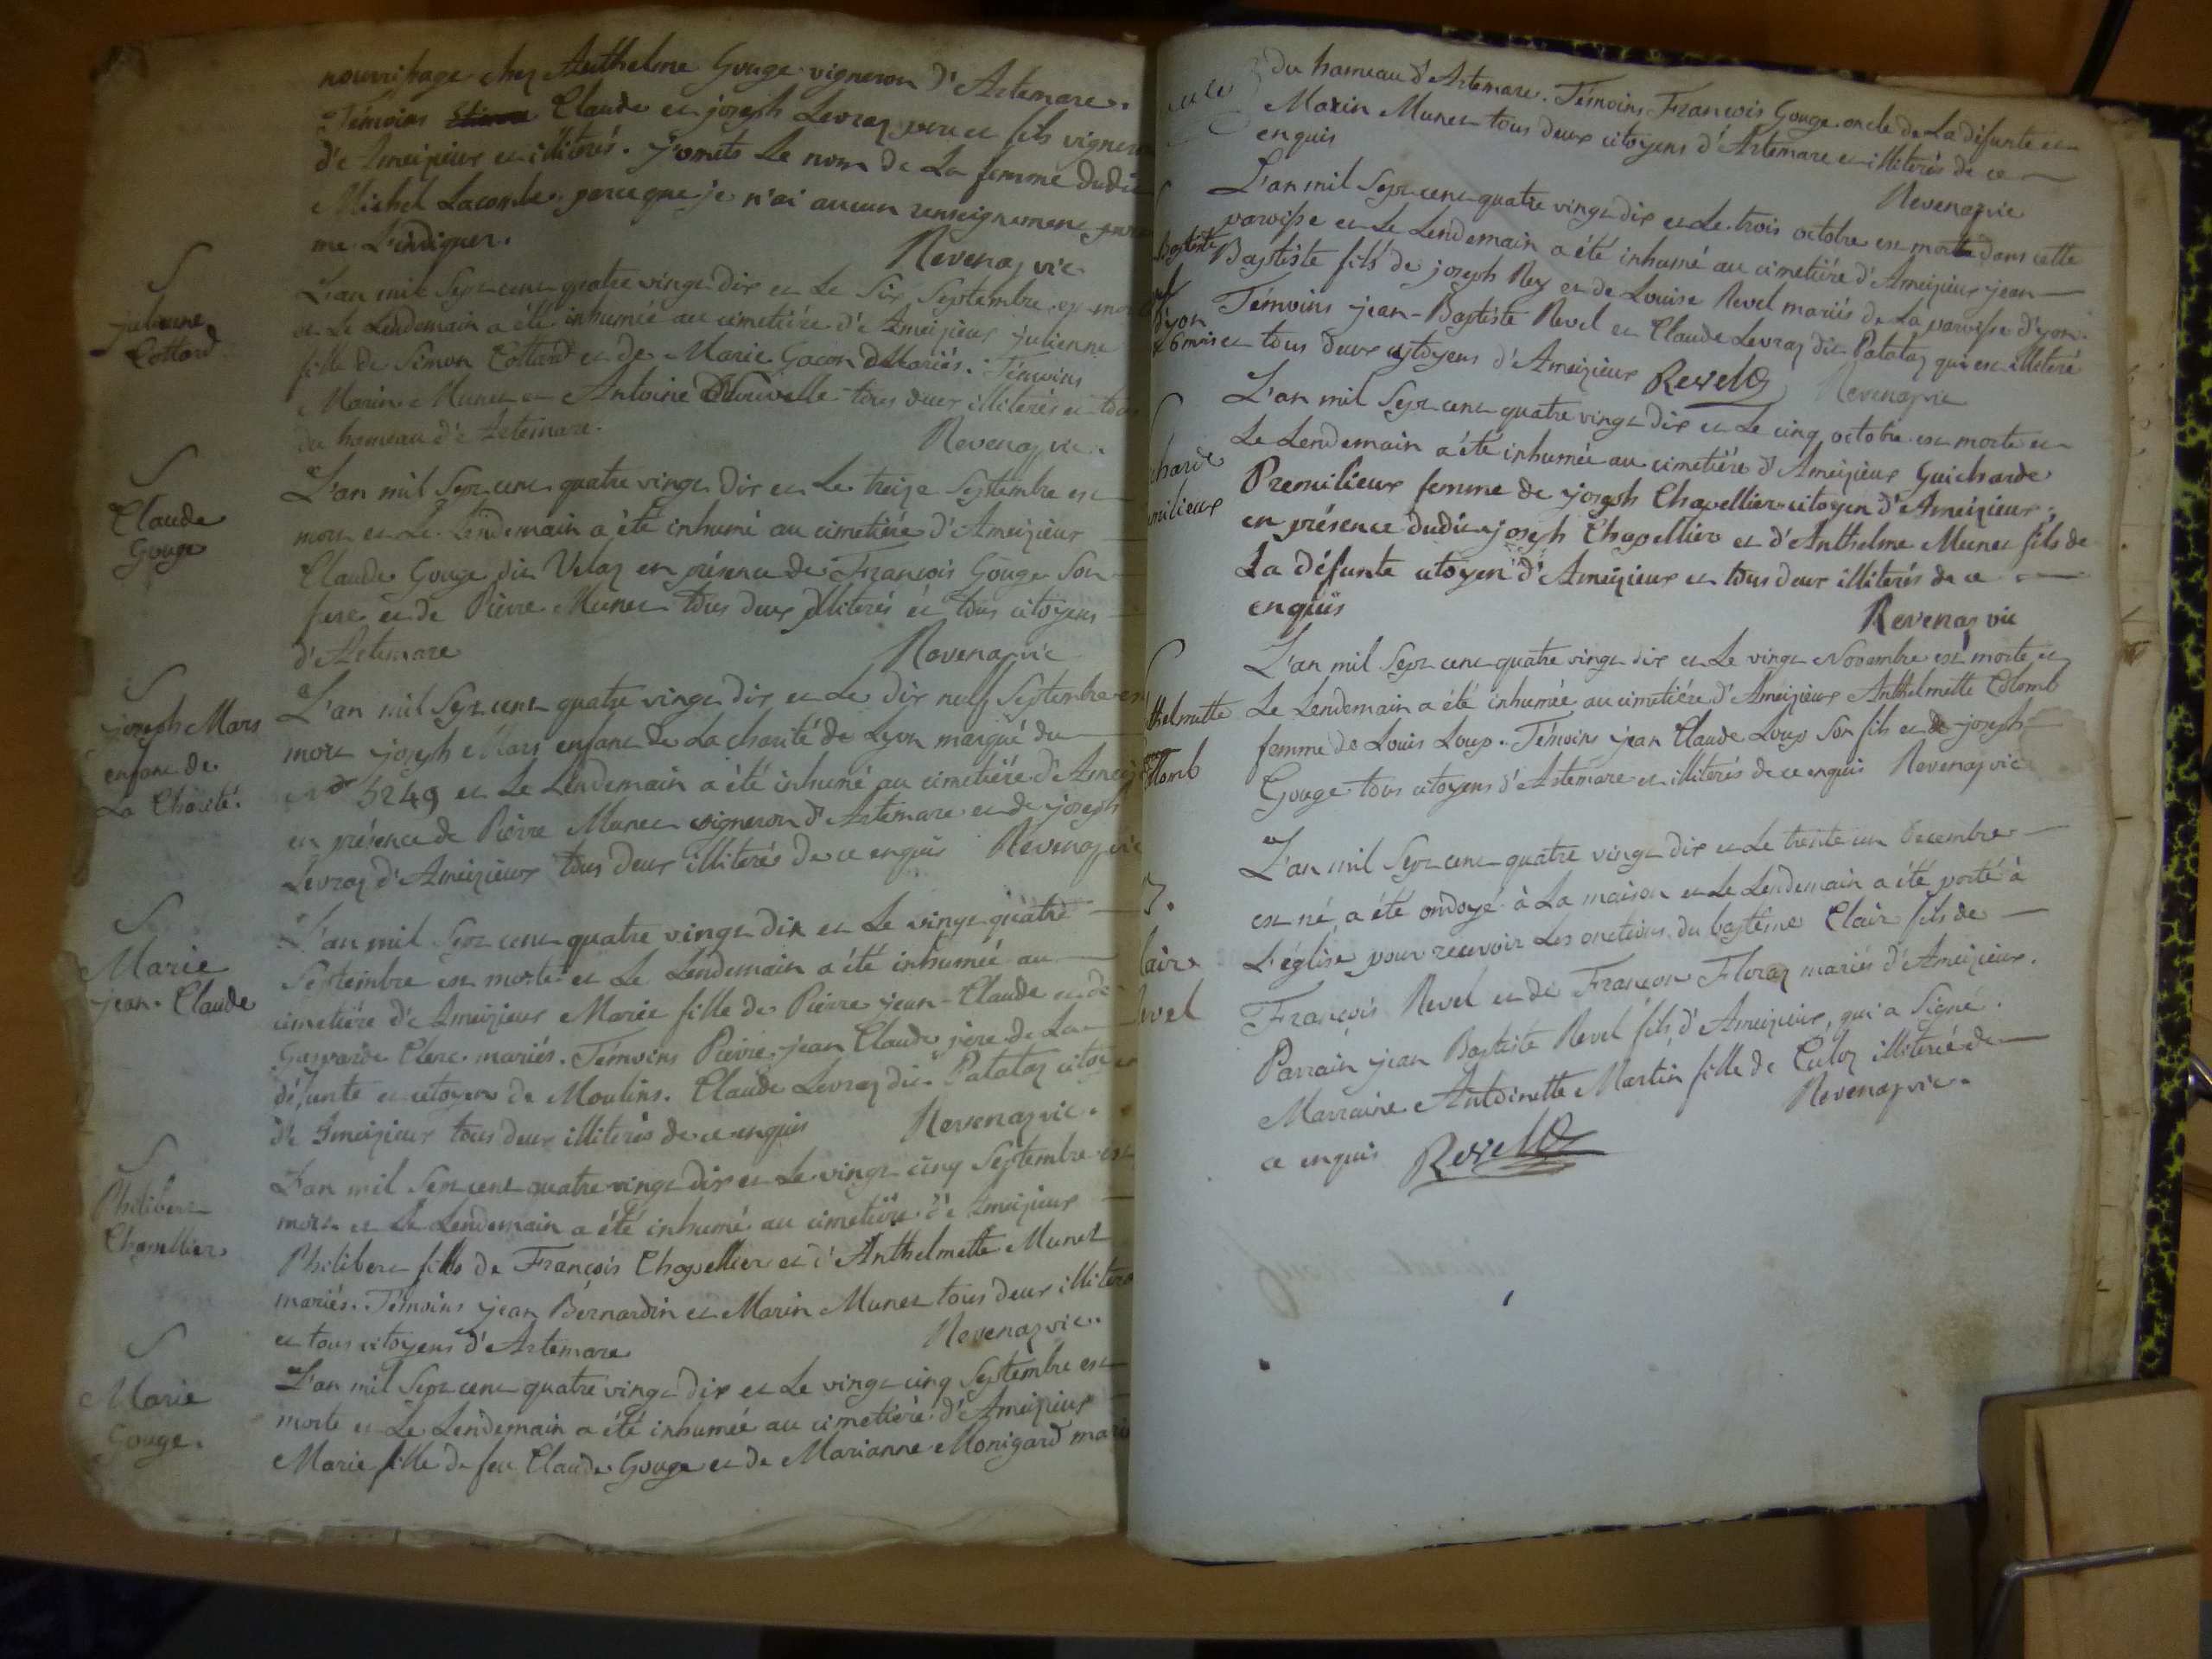 nourrissage chez Anthelme Gouge vigneron d'Artemare.
Témoins Claude et joseph Levraz pere et fils vigner
d'Ameizieux et illiterés. j'omets Le nom de La femme dudit
Michel Lacombe, parceque je n'ai aucun renseignement pour
me L'indiquer.
Revenaz vic.
S
julienne
Cottard
L'an mil Sept cent quatre vingt dix et Le Six Septembre est morte
et Le Lendemain a été inhumée au cimetiére d'Ameizieux julienne
fille de Simon Cottard et de Marie Gacon Mariés. Témoins
Marin Munet et Antoine tous deux illiterés et tous
du hameau d'Artemare.
Revenaz vic.
S
Claude
Gouge
L'an mil Sept cent quatre vingt dix et Le treize Septembre est
mort et Le Lendemain a été inhumé au cimetiére d'Ameizieux
Claude Gouge dit Velaz en présence de François Gouge Son
frere et de Pierre Munet tous deux illiterés et tous citoyens
d'Artemare
Revenaz vic
S
joseph Mars
enfant de
La Charité.
L'an mil Sept cent quatre vingt dix et Le dix neuf Septembre est
mort joseph Mars enfant de La charité de Lyon marqué du
N° 5249 et Le Lendemain a été inhumé au cimetiére d'Ameiz
en présence de Pierre Munet vigneron d'Artemare et de joseph
Levraz d'Ameizieux tous deux illiterés de ce enquis Revenaz vic
S
Marie
jean-Claude
L'an mil Sept cent quatre vingt dix et Le vingt quatre
Septembre est morte et Le Lendemain a été inhumée au
cimetiére d'Ameizieux Marie fille de Pierre jean-Claude et de
Gasparde Clerc mariés. Témoins Pierre jean Claude pere de La
défunte et citoyen de Moulins. Claude Levraz dit Patataz citoyen
d'Ameizieux tous deux illiterés de ce enquis Revenaz vic.
S
Philibert
Chapellier
L'an mil Sept cent quatre vingt dix et Le vingt cinq Septembre est
mort et Le Lendemain a été inhumé au cimetiére d'Ameizieux
Philibert fils de François Chapellier et d'Anthelmette Munet
mariés. Témoins jean Bernardin et Marin Munet tous deux illiteré
et tous citoyens d'Artemare
Revenaz vic.
S
Marie
Gouge.
L'an mil Sept cent quatre vingt dix et Le vingt cinq Septembre est
morte et Le Lendemain a été inhumée au cimetiére d'Ameizieux
Marie fille de feu Claude Gouge et de Marianne Monigard marié
du hameau d'Artemare. Témoins François Gouge oncle de La défunte et
Marin Munet tous deux citoyens d'Artemare et illiterés de ce
enquis
Revenaz vic
Baptiste
d'yon
de 6 mois
L'an mil Sept cent quatre vingt dix et Le trois octobre est morte dans cette
paroisse et Le Lendemain a été inhumé au cimetiére d'Ameizieux jean
Baptiste fils de joseph Rey et de Louise Revel mariés de La paroisse d'yon.
Témoins jean-Baptiste Revel et Claude Levraz dit Patataz qui est illiteré
et tous deux citoyens d'Ameizieux Revel Revenaz vic
charde
milieux
L'an mil Sept cent quatre vingt dix et Le cinq octobre est morte et
Le Lendemain a été inhumée au cimetiére d'Ameizieux Guicharde
Premilieux femme de joseph Chapellier citoyen d'Ameizieux,
en présence dudit joseph Chapellier et d'Anthelme Munet fils de
La défunte citoyen d'Ameizieux et tous deux illiterés de ce
enquis
Revenaz vic
thelmette
Colomb
L'an mil Sept cent quatre vingt dix et Le vingt Novembre est morte et
Le Lendemain a été inhumée au cimetiére d'Ameizieux Anthelmette Colomb
femme de Louis Loup. Témoins jean Claude Loup Son fils et de joseph
Gouge tous citoyens d'Artemare et illiterés de ce enquis Revenaz vic
lair
evel
L'an mil Sept cent quatre vingt dix et Le trente un Decembre
est né a été ondoyé à La maison et Le Lendemain a été porté à
L'église pour recevoir Les onctions du baptême Clair fils de
François Revel et de Françon Floraz mariés d'Ameizieux.
Parrain jean Baptiste Revel fils, d'Ameizieux, qui a Signé.
Marraine Antoinette Martin fille de Culoz illiterée de
ce enquis Revel Revenaz vic.